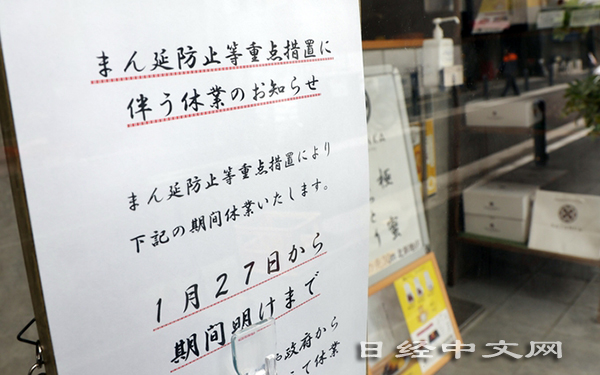 まん延防止等重点措置に
伴う休業のお知らせ
まん延防止等重点措置により
下記の期間休業いたします。
1月27日から
期間明けまで
政府から
て休業
極
蜜
日经中文网